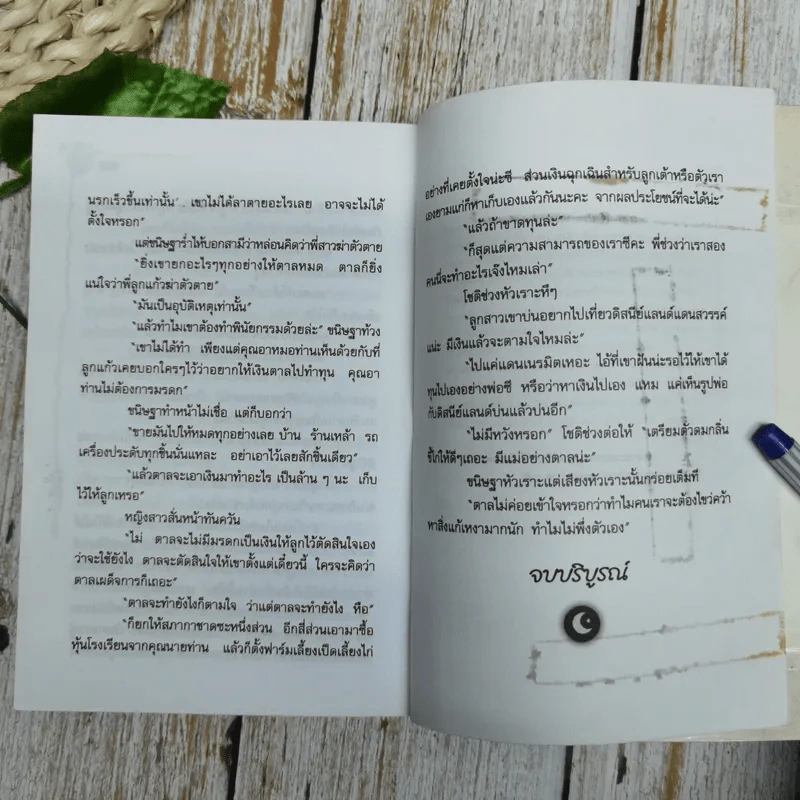 นรกเร็วขึ้นเท่านั้น’ เขาไม่ได้ลาตายอะไรเลย อาจจะไม่ได้
ตั้งใจหรอก”
แต่ขนิษฐาร่ำไห้บอกสามีว่าหล่อนคิดว่าพี่สาวฆ่าตัวตาย
“ยิ่งเขายกอะไรๆทุกอย่างให้ตาลหมด ตาลก็ยิ่ง
แน่ใจว่าพี่ลูกแก้วฆ่าตัวตาย”
“มันเป็นอุบัติเหตุเท่านั้น”
“แล้วทำไมเขาต้องทำพินัยกรรมด้วยล่ะ” ขนิษฐาท้วง
“เขาไม่ได้ทำ เพียงแต่คุณอาหมอท่านเห็นด้วยกับที่
ลูกแก้วเคยบอกใครๆไว้ว่าอยากให้เงินตาลไปทำทุน คุณอา
ท่านไม่ต้องการมรดก”
ขนิษฐาทำหน้าไม่เชื่อ แต่ก็บอกว่า
“ขายมันไปให้หมดทุกอย่างเลย บ้าน ร้านเหล้า รถ
เครื่องประดับทุกชิ้นนั่นแหละ อย่าเอาไว้เลยสักชิ้นเดียว”
“แล้วตาลจะเอาเงินมาทำอะไร เป็นล้าน ๆ นะ เก็บ
ไว้ให้ลูกเหรอ”
หญิงสาวสั่นหน้าทันควัน
“ไม่ ตาลจะไม่มีมรดกเป็นเงินให้ลูกไว้ตัดสินใจเอง
ว่าจะใช้ยังไง ตาลจะตัดสินใจให้เขาตั้งแต่เดี๋ยวนี้ ใครจะคิดว่า
ตาลเผด็จการก็เถอะ”
“ตาลจะทำยังไงก็ตามใจ ว่าแต่ตาลจะทำยังไง หือ”
“ก็ยกให้สภากาชาดซะหนึ่งส่วน อีกสี่ส่วนเอามาซื้อ
หุ้นโรงเรียนจากคุณนายท่าน แล้วก็ตั้งฟาร์มเลี้ยงเป็ดเลี้ยงไก่
อย่างที่เคยตั้งใจน่ะซี ส่วนเงินฉุกเฉินสำหรับลูกเต้าหรือตัวเรา
เองยามแก่ก็หาเก็บเองแล้วกันนะคะ จากผลประโยชน์ที่จะได้น่ะ”
“แล้วถ้าขาดทุนล่ะ”
“ก็สุดแต่ความสามารถของเราซีคะ พี่ช่วงว่าเราสอง
คนนี่จะทำอะไรเจ๊งไหมเล่า”
โชติช่วงหัวเราะหึๆ
“ลูกสาวเขาบ่นอยากไปเที่ยวดิสนีย์แลนด์แดนสวรรค์
แน่ะ มีเงินแล้วจะตามใจไหมล่ะ”
“ไปแค่แดนเนรมิตเหอะ ไอ้ที่เขาฝันน่ะรอไว้ให้เขาได้
ทุนไปเองอย่างพ่อซี หรือว่าหาเงินไปเอง แหม แค่เห็นรูปพ่อ
กับดิสนีย์แลนด์บ่นแล้วบ่นอีก”
“ไม่มีหวังหรอก” โชติช่วงต่อให้ “เตรียมตัวดมกลิ่น
ขี้ไก่ให้ดีๆเถอะ มีแม่อย่างตาลน่ะ”
ขนิษฐาหัวเราะแต่เสียงหัวเราะนั้นกร่อยเต็มที่
“ตาลไม่ค่อยเข้าใจหรอกว่าทำไมคนเราจะต้องไขว่คว้า
หาสิ่งแก้เหงามากนัก ทำไมไม่พึ่งตัวเอง”
จบบริบูรณ์